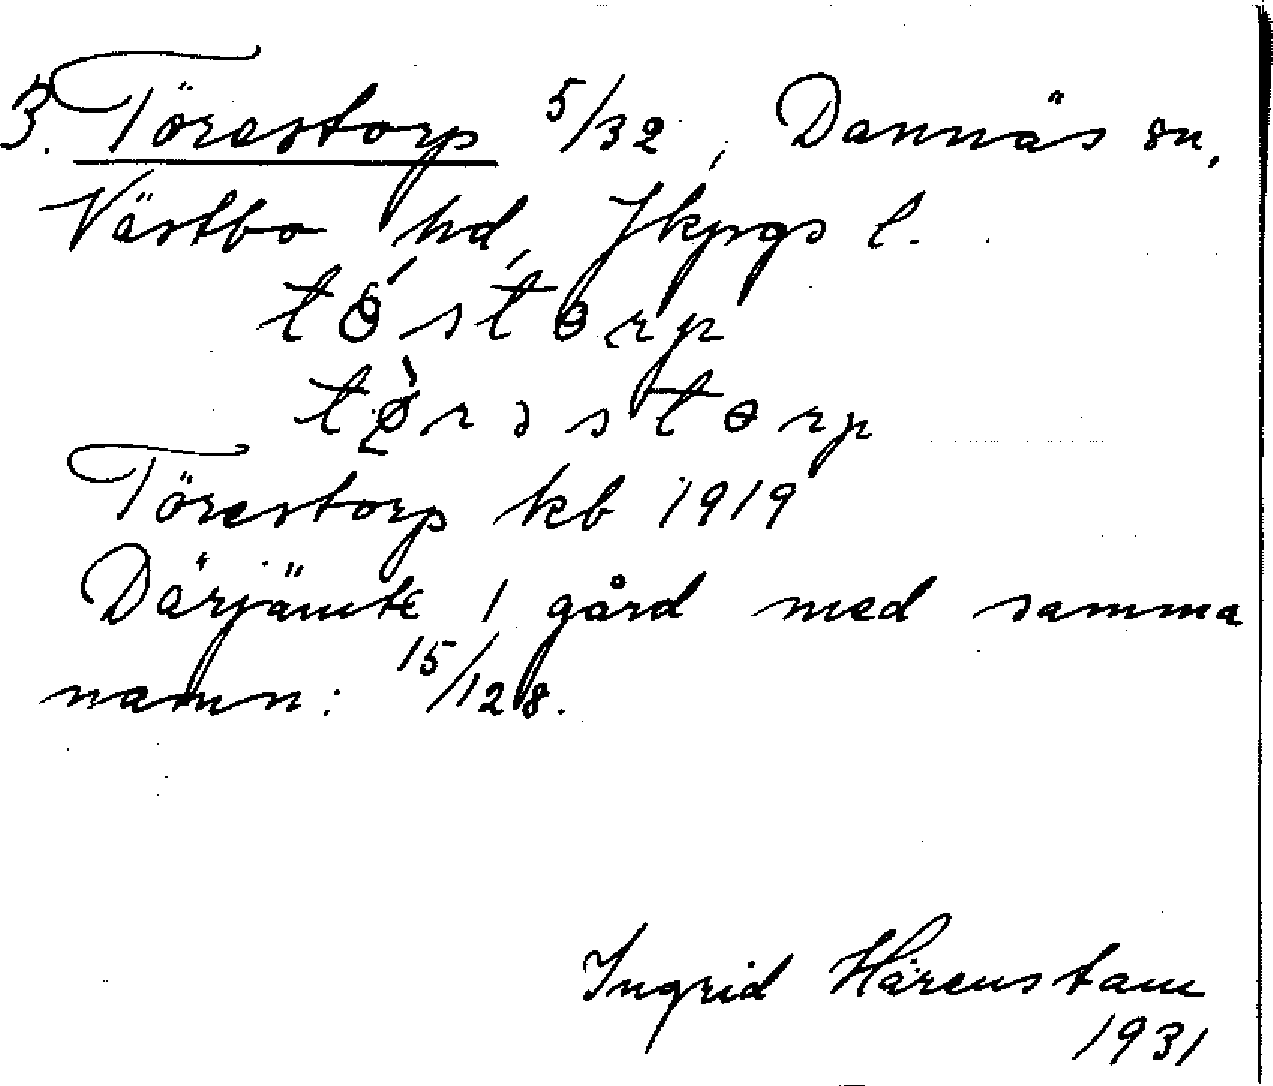 3. Törestorp 5/32, Dannäs sn,
Västbo hd, Jkpgs l.
tö́stɵrp
tö̀rəstɵrp
Törestorp kb 1919
Därjämte 1 gård med samma
namn: 15/128.
Ingrid Härenstam
1931